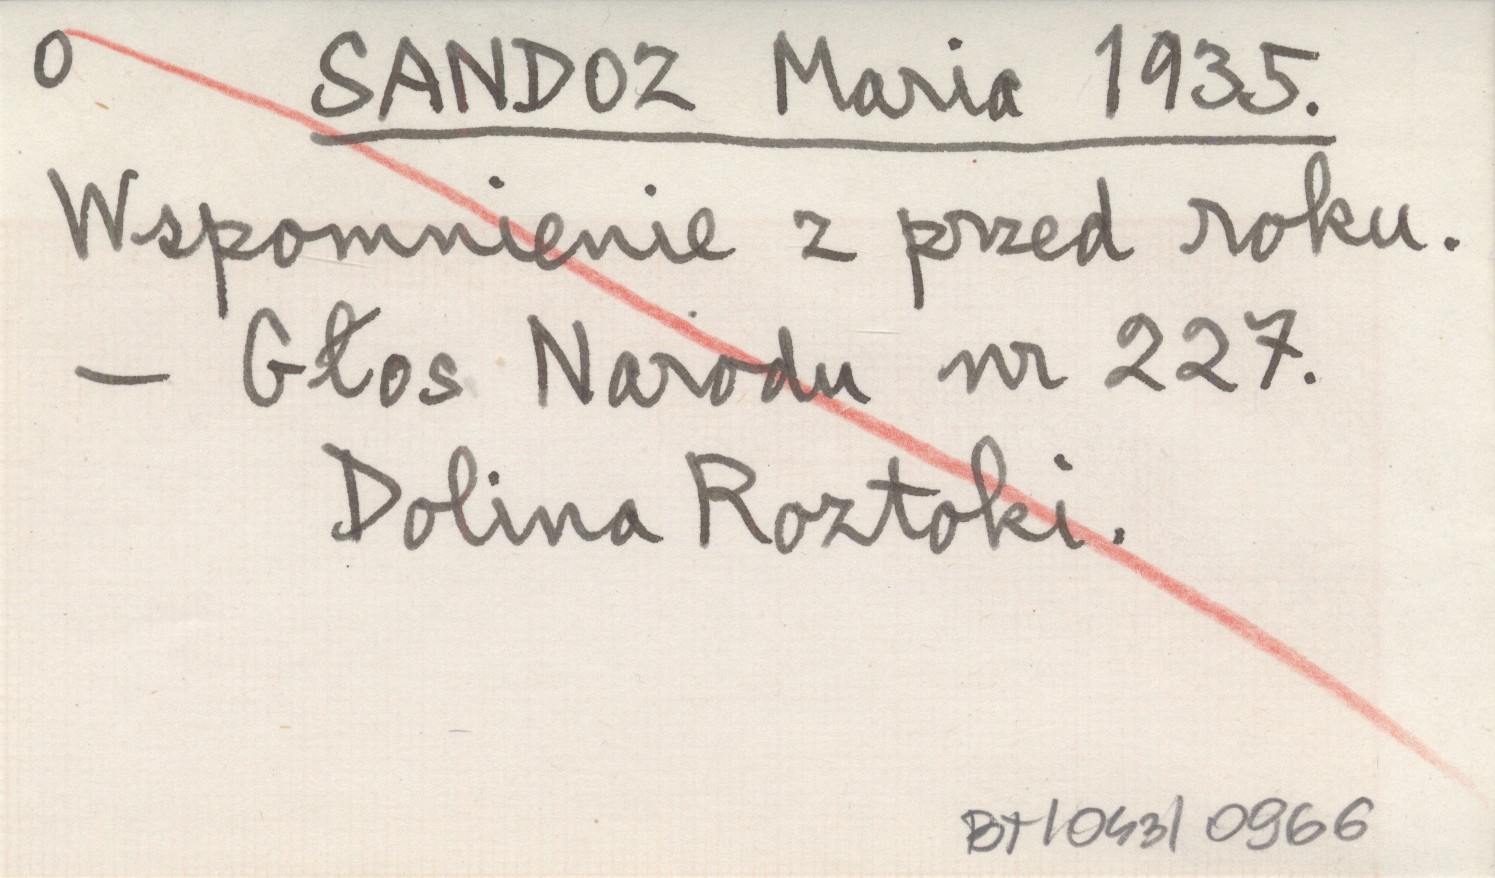 o SANDOZ Maria 1935.
Wspomnienie z przed roku.
— Głos Narodu nr 227.
Dolina Roztoki.
BT/043/0966